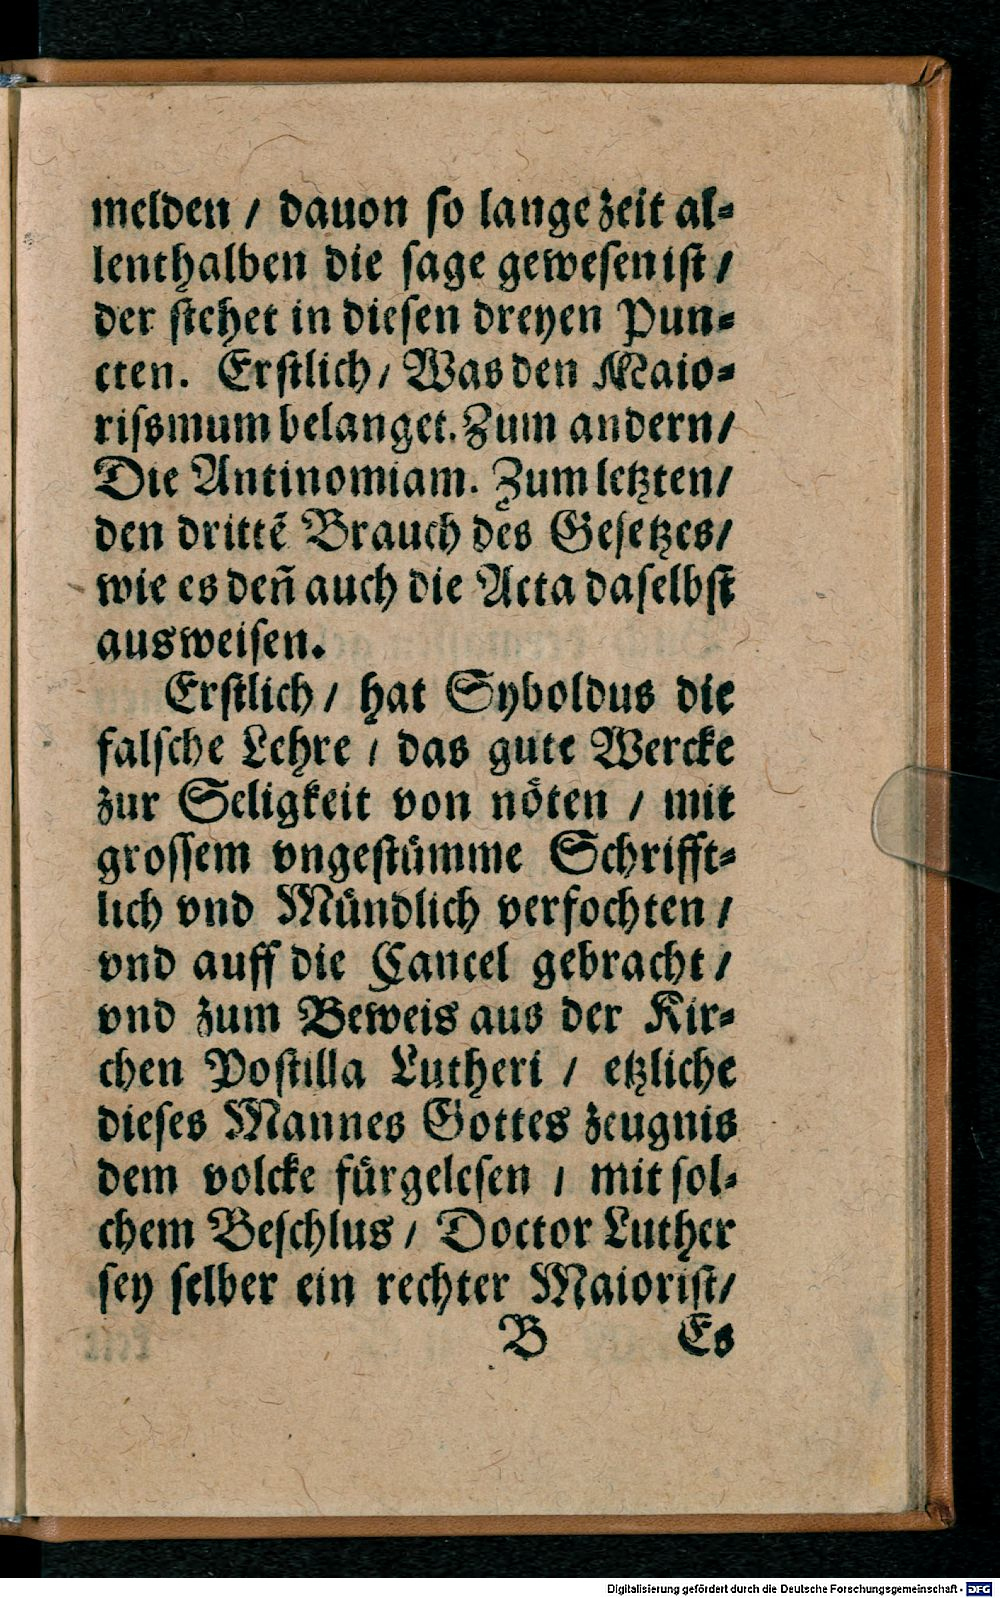 melden / dauon so lange zeit al-
lenthalben die sage gewesen ist /
der stehet in diesen dreyen Pun-
cten. Erstlich / Was den Maio-
rissmum belanget. Zum andern /
Die Antinomiam. Zum letzten /
den drittẽ Brauch des Gesetzes /
wie es deñ auch die Acta daselbst
ausweisen.
Erstlich / hat Syboldus die
falsche Lehre / das gute Wercke
zur Seligkeit von nöten / mit
grossem vngestümme Schrifft-
lich vnd Mündlich verfochten /
vnd auff die Cancel gebracht /
vnd zum Beweis aus der Kir-
chen Postilla Lutheri / etzliche
dieses Mannes Gottes zeugnis
dem volcke fürgelesen / mit sol-
chem Beschlus / Doctor Luther
sey selber ein rechter Maiorist /
B Es
Digitalisierung gefördert durch die Deutsche Forschungsgemeinschaft - DFG